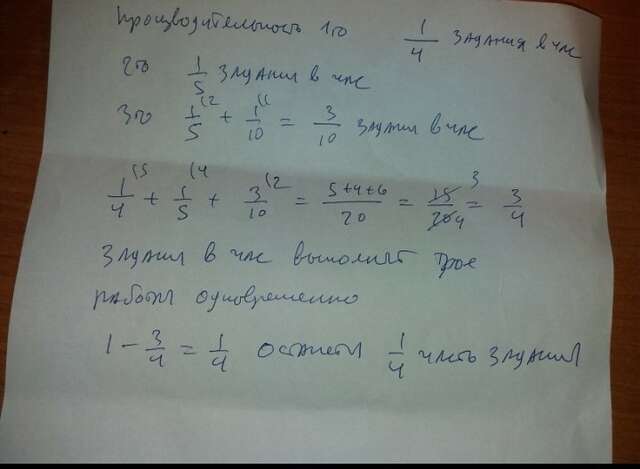 Производительность 1го 1/4 задания в час
2го 1/5 задания в час
3го 1/5 (2 + 1/10 (1 = 3/10 задания в час
1/4 (5 + 1/5 (4 + 3/10 (2 = 5+4+6/20 = 15/20 4 = 3 3/4
задания в час выполнят трое
работы одновременно
1 - 3/4 = 1/4 останется 1/4 часть задания